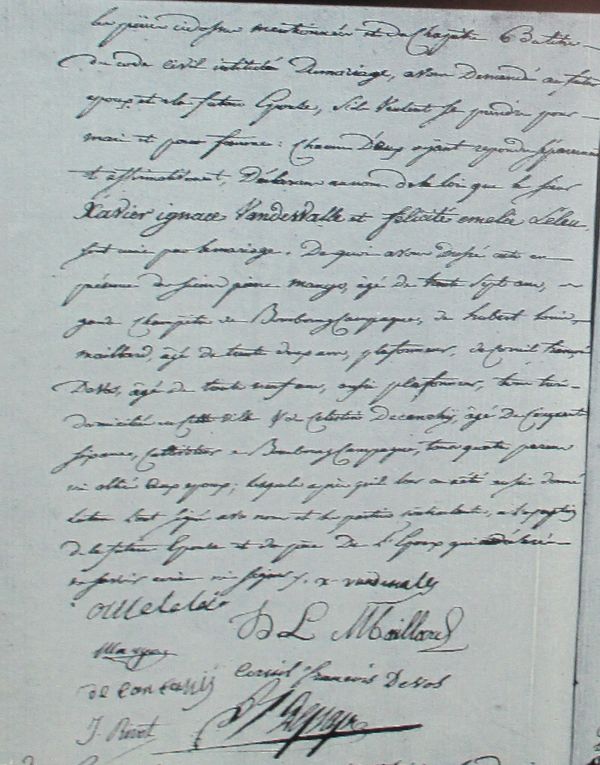 les pièces ci dessus mentionnées et du Chapitre 6 Du titre
du code civil intitulé Du mariage, avons Demandé au futur
époux et à la future Epouse, s'ils veulent se prendre pour
mari et pour femme: chacun D'eux ayant repondu séparement
et affirmativement, Déclarons au nom de la loi que le sieur
Xavier ignace Vandewalle et félicité emelie Leleu
sont unis par le mariage. De quoi avons dressé acte en
présence de sieurs mango, âgé de trente sept ans,
garde Champêtre de Bourbourg Campagne, de hubert Louis
maillard, âgé de trente deux ans, plafonneur, de Cornil françois
Devos, âgé de trente neuf ans, aussi plafonneur, tous trois
domiciliés en cette ville & de Celestin Decanchy, âgé De Cinquante
six ans, Cultivateur à Bourbourg Campagne, tous quatre parens
ou alliés des époux; lesquels après qu'il leur en a été aussi donné
lecture l'ont signé avec nous et les parties contractantes, a l'exception
de la future Epouse et du père De l'Epoux qui ont déclaré
ne savoir écrire ni signer. x vandewalle
H L Maillard
Cornil francois Devos
J. Rivet